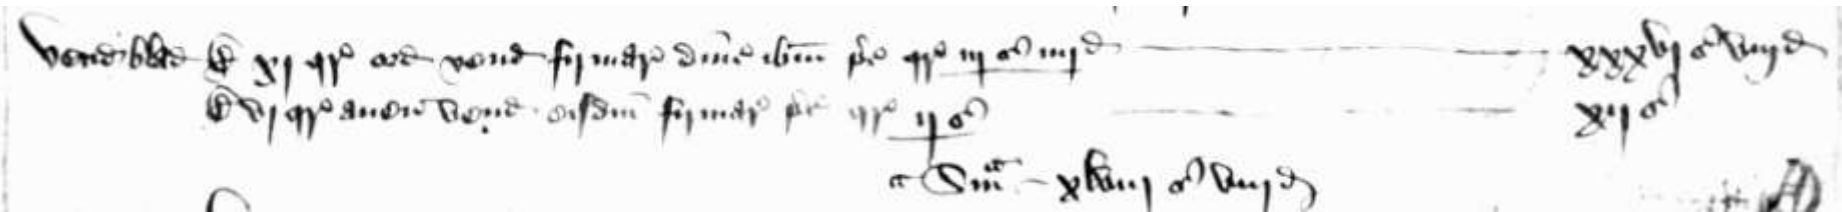 vend blad Et xj qrꝰ ord vend firmarꝰ dm̄e ibm̄ p̄c qrꝰ iij sꝰ iiij d xxxvj sꝰ viij d
Et vj qrꝰ auen vend eisdm̄ firmarꝰ p̄c qrꝰ ij sꝰ xij sꝰ
Sm̄ᵃ – xlviij sꝰ viij d